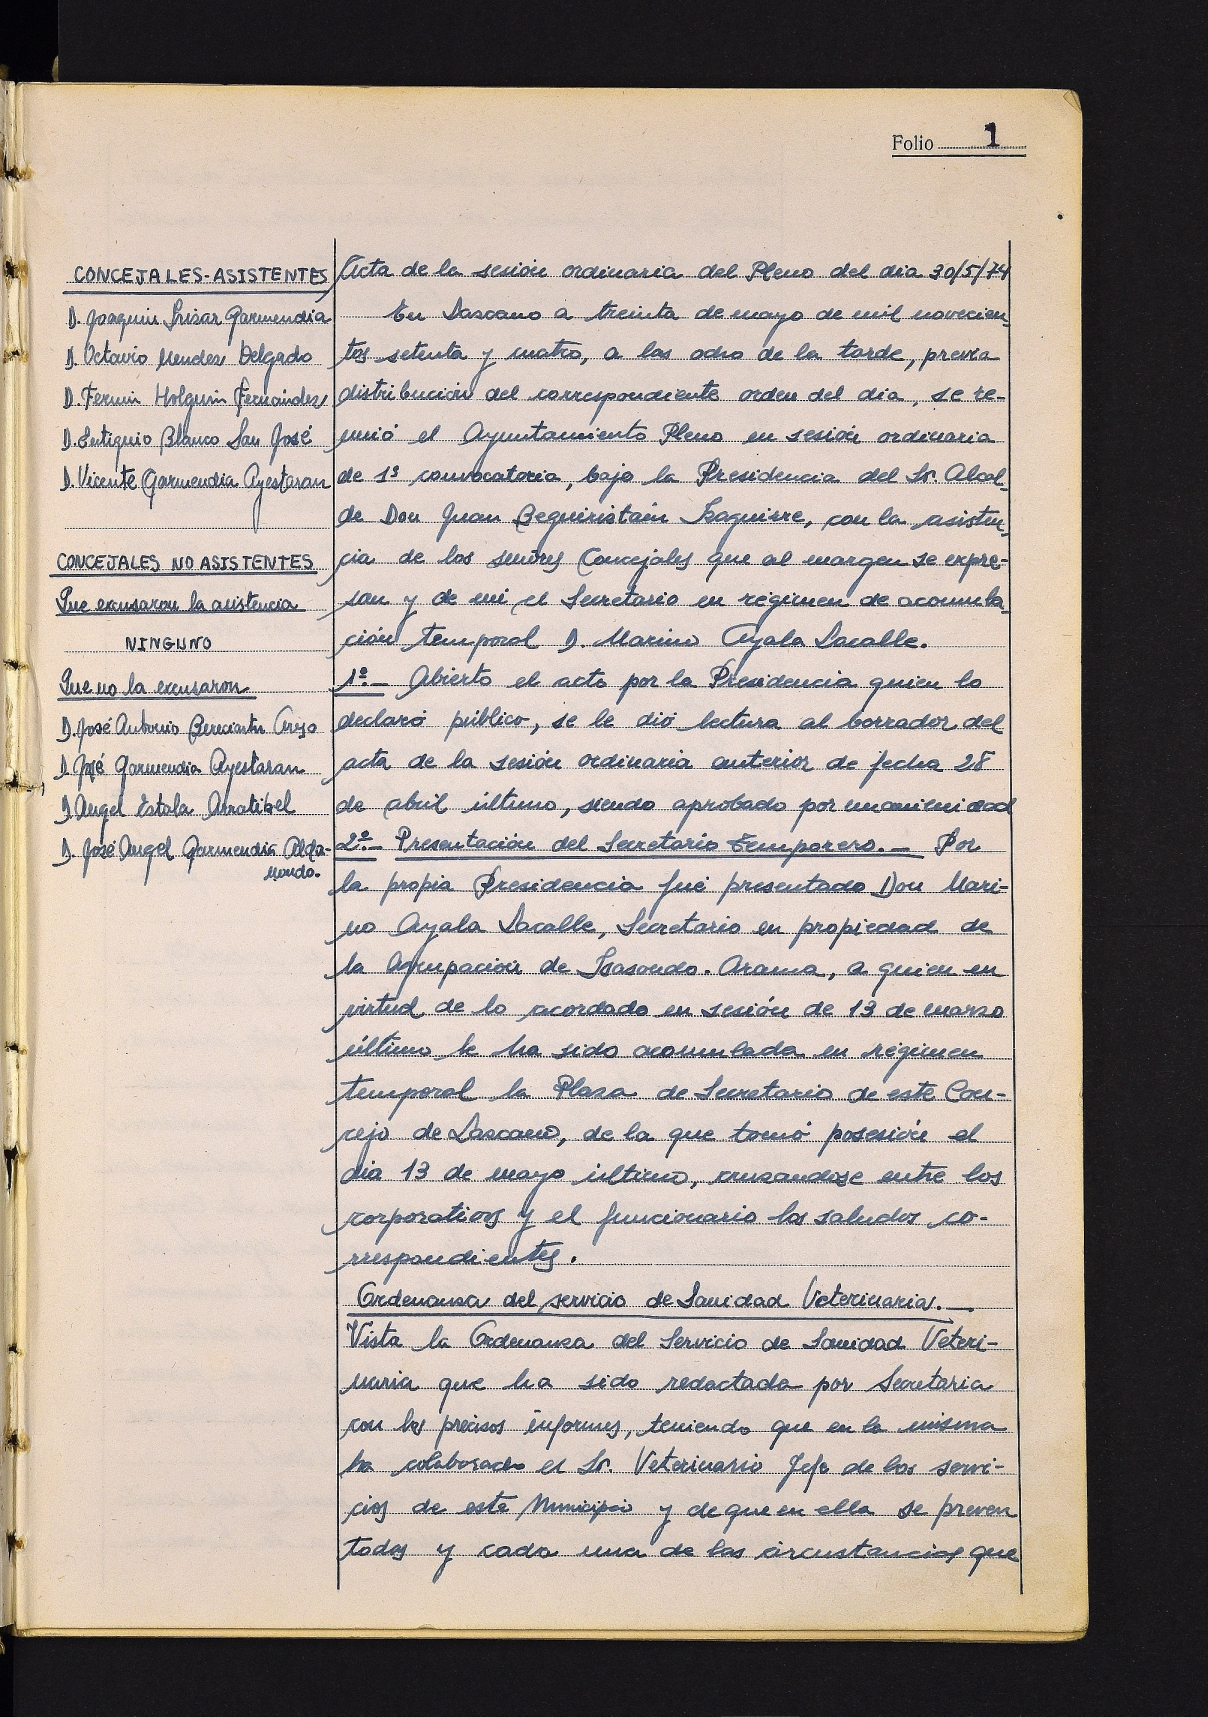 Folio 1
CONCEJALES-ASISTENTES
D. Joaquin Irizar Garmendia
D. Octavio Mendez Delgado
D. Fermin Holguin Fernández
D. Eutiquio Blanco San José
D. Vicente Garmendia Ayestaran
CONCEJALES NO ASISTENTES
Que excusaron la asistencia
NINGUNO
Que no la excusaron
D. José Antonio
D. José Garmendia Ayestaran
D. Angel Estala Arratibel
D. José Angel Garmendia Alda-
mondo.
Acta de la sesión ordinaria del Pleno del dia 30/5/74
En Lazcano a treinta de mayo de mil novecien-
tos setenta y cuatro, a las ocho de la tarde, previa
distribución del correspondiente orden del dia, se re-
unió el Ayuntamiento Pleno en sesión ordinaria
de 1ª convocatoria, bajo la Presidencia del Sr. Alcal-
de Don Juan Beguiristain Izaguirre, con la asisten-
cia de los señores Concejales que al margen se expre-
san y de mi el Secretario en régimen de acumula-
ción temporal D. Marino Ayala Lacalle.
1º.- Abierto el acto por la Presidencia quien lo
declaró público, se le dió lectura al borrador del
acta de la sesión ordinaria anterior de fecha 28
de abril último, siendo aprobado por unanimidad
2º.- Presentación del Secretario temporero.- Por
la propia Presidencia fué presentado Don Mari-
no Ayala Lacalle, Secretario en propiedad de
la Agrupación de Isasondo-Arama, a quien en
virtud de lo acordado en sesión de 13 de marzo
último le ha sido acumulada en régimen
temporal la Plaza de Secretario de este Con-
cejo de Lazcano, de la que tomó posesión el
dia 13 de mayo último, cruzandose entre los
corporativos y el funcionario los saludos co-
rrespondientes.
Ordenanza del servicio de Sanidad Veterinaria.-
Vista la Ordenanza del Servicio de Sanidad Veteri-
naria que ha sido redactada por Secretaria
con los precisos informes, teniendo que en la misma
ha colaborado el Sr. Veterinario Jefe de los servi-
cios de este Municipio y de que en ella se preven
todas y cada una de las circustancias que